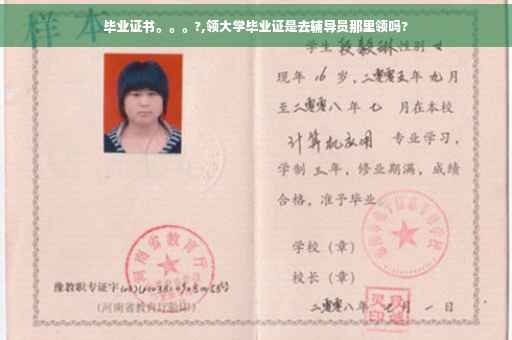 毕业证书。。。?,领大学毕业证是去辅导员那里领吗?
样本
学生段毅琳性别女
现年16岁,二零零五年九月
至二零零八年七月在本校
计算机应用 专业学习,
学制三年,修业期满,成绩
合格,准予毕业
学校(章)
校长(章)
二零零八年 月一日
河南省教育厅
豫教职专证字
(河南省教育厅验印)